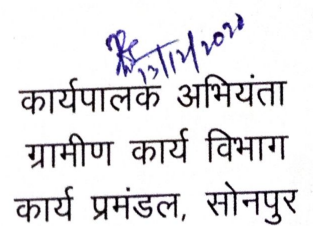 13/12/2020
कार्यपालक अभियंता
ग्रामीण कार्य विभाग
कार्य प्रमंडल, सोनपुर